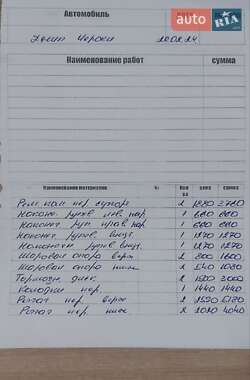 Автомобиль
AUTO RIA
Джип Чероки 20.02.24
Наименование работ сумма
Наименование материалов Кол во цена сумма
Рем. ком пер супорт 2 1880 3760
Наконеч рулев лев нар. 1 680 680
Наконеч рул прав нар 1 680 680
Наконеч рулев внут. 1 1270 1270
Наконечн рулев внут. 1 1270 1270
Шаровая опора верх 2 800 1600
Шаровая опора ниж 2 540 1080
Тормозн диск 2 1500 3000
Колодки пер. 1 1440 1440
Рычаг пер верх 2
Рычаг пер ниж 2